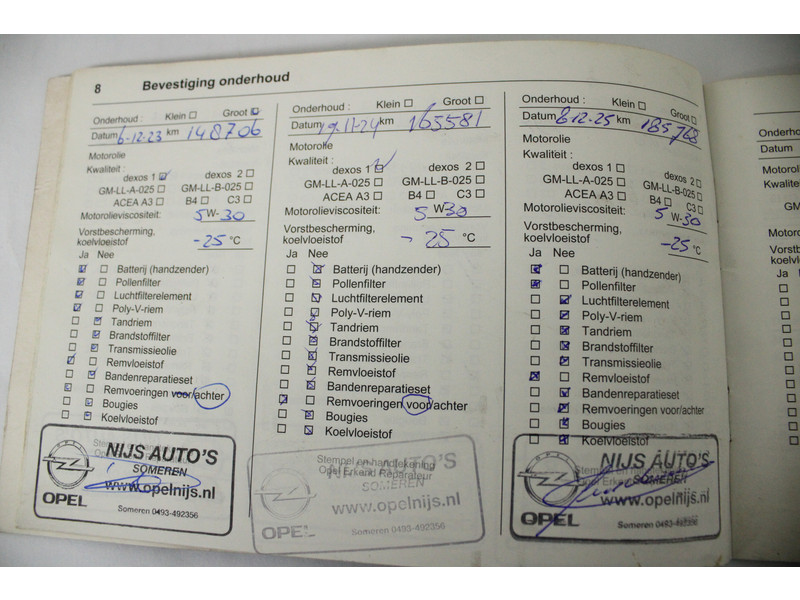 8 Bevestiging onderhoud
Onderhoud : Klein Groot
Datum 6-12-23 km 148706
Motorolie
Kwaliteit :
dexos 1 dexos 2
GM-LL-A-025 GM-LL-B-025
ACEA A3 B4 C3
Motorolieviscositeit: 5W-30
Vorstbescherming,
koelvloeistof -25 °C
Ja Nee
Batterij (handzender)
Pollenfilter
Luchtfilterelement
Poly-V-riem
Tandriem
Brandstoffilter
Transmissieolie
Remvloeistof
Bandenreparatieset
Remvoeringen voor/achter
Bougies
Koelvloeistof
NIJS AUTO'S
SOMEREN
www.opelnijs.nl
OPEL Someren 0493-492356
Onderhoud : Klein Groot
Datum 19-11-24 km 165581
Motorolie
Kwaliteit :
dexos 1 dexos 2
GM-LL-A-025 GM-LL-B-025
ACEA A3 B4 C3
Motorolieviscositeit: 5 W-30
Vorstbescherming,
koelvloeistof - 25 °C
Ja Nee
Batterij (handzender)
Pollenfilter
Luchtfilterelement
Poly-V-riem
Tandriem
Brandstoffilter
Transmissieolie
Remvloeistof
Bandenreparatieset
Remvoeringen voor/achter
Bougies
Koelvloeistof
Stempel en handtekening
Opel Erkend Reparateur
NIJS AUTO'S
SOMEREN
www.opelnijs.nl
OPEL Someren 0493-492356
Onderhoud : Klein Groot
Datum 8-12-25 km 185768
Motorolie
Kwaliteit :
dexos 1 dexos 2
GM-LL-A-025 GM-LL-B-025
ACEA A3 B4 C3
Motorolieviscositeit: 5 W-30
Vorstbescherming,
koelvloeistof -25 °C
Ja Nee
Batterij (handzender)
Pollenfilter
Luchtfilterelement
Poly-V-riem
Tandriem
Brandstoffilter
Transmissieolie
Remvloeistof
Bandenreparatieset
Remvoeringen voor/achter
Bougies
Koelvloeistof
NIJS AUTO'S
SOMEREN
www.opelnijs.nl
OPEL Someren 0493-492356
Datum
Ja